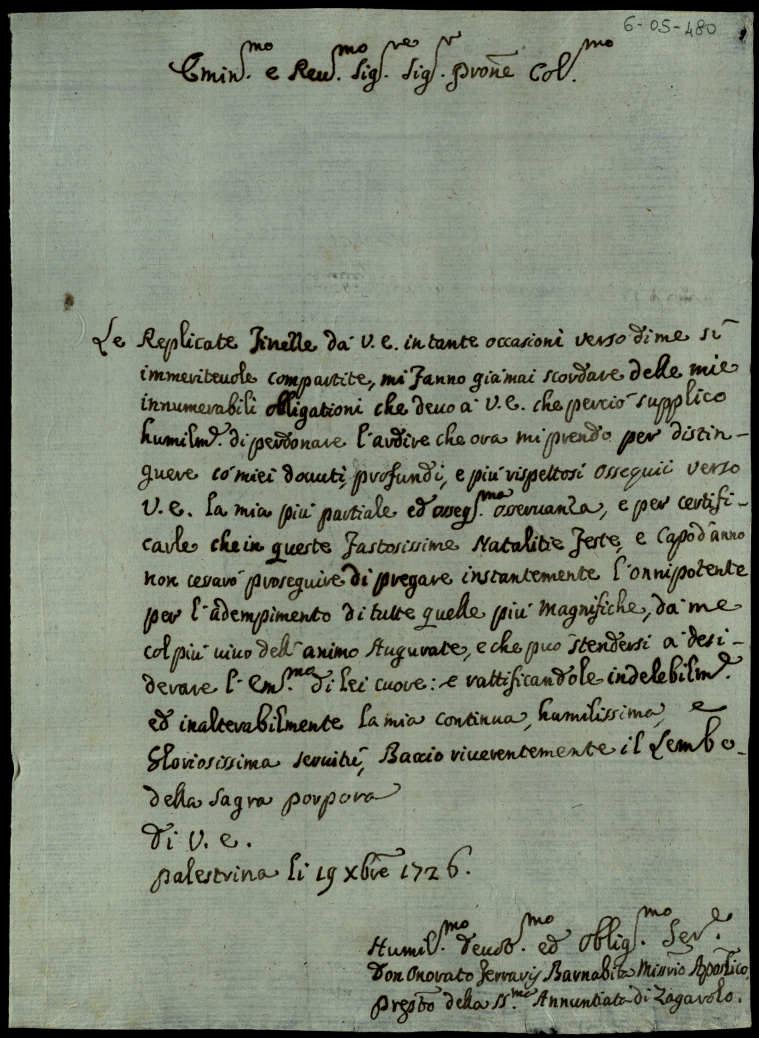 6-05-480
Emin.mo e Reu.mo Sig.re Sig.r pron̄e Col.mo
Le Replicate finezze da V. E. in tante occasioni verso di me sì
immeriteuole compartite, mi fanno giamai scordare delle mie
innumerabili obligationi che deuo à V. E. che perciò supplico
humilm.e di perdonare l'ardire che ora mi prendo per distin-
guere co' miei douuti, profundi, e più rispettosi ossequii verso
V. E. la mia più partiale ed osseq.ma osseruanza, e per certifi-
carle che in queste fastosissime Natalitie feste, e Capo d'anno
non cesarò proseguire di pregare instantemente l'onnipotente
per l'adempimento di tutte quelle più Magnifiche, da me
col più uiuo dell'animo Augurate, e che può stendersi à desi-
derare l'Em.mo di lei cuore: e rattificandole indelebilm.e
ed inalterabilmente la mia continua, humilissima, e
Gloriosissima seruitù, Baccio riuerentemente il Lembo
della Sagra porpora
Di V. E.
palestrina li 19 Xbr̄e 1726.
Humil.mo Deuot.mo ed Oblig.mo Ser.e
Don Onorato Ferraris Barnabita Missrio Apostlico
Presto della SS.ma Annuntiata di Zagarolo.